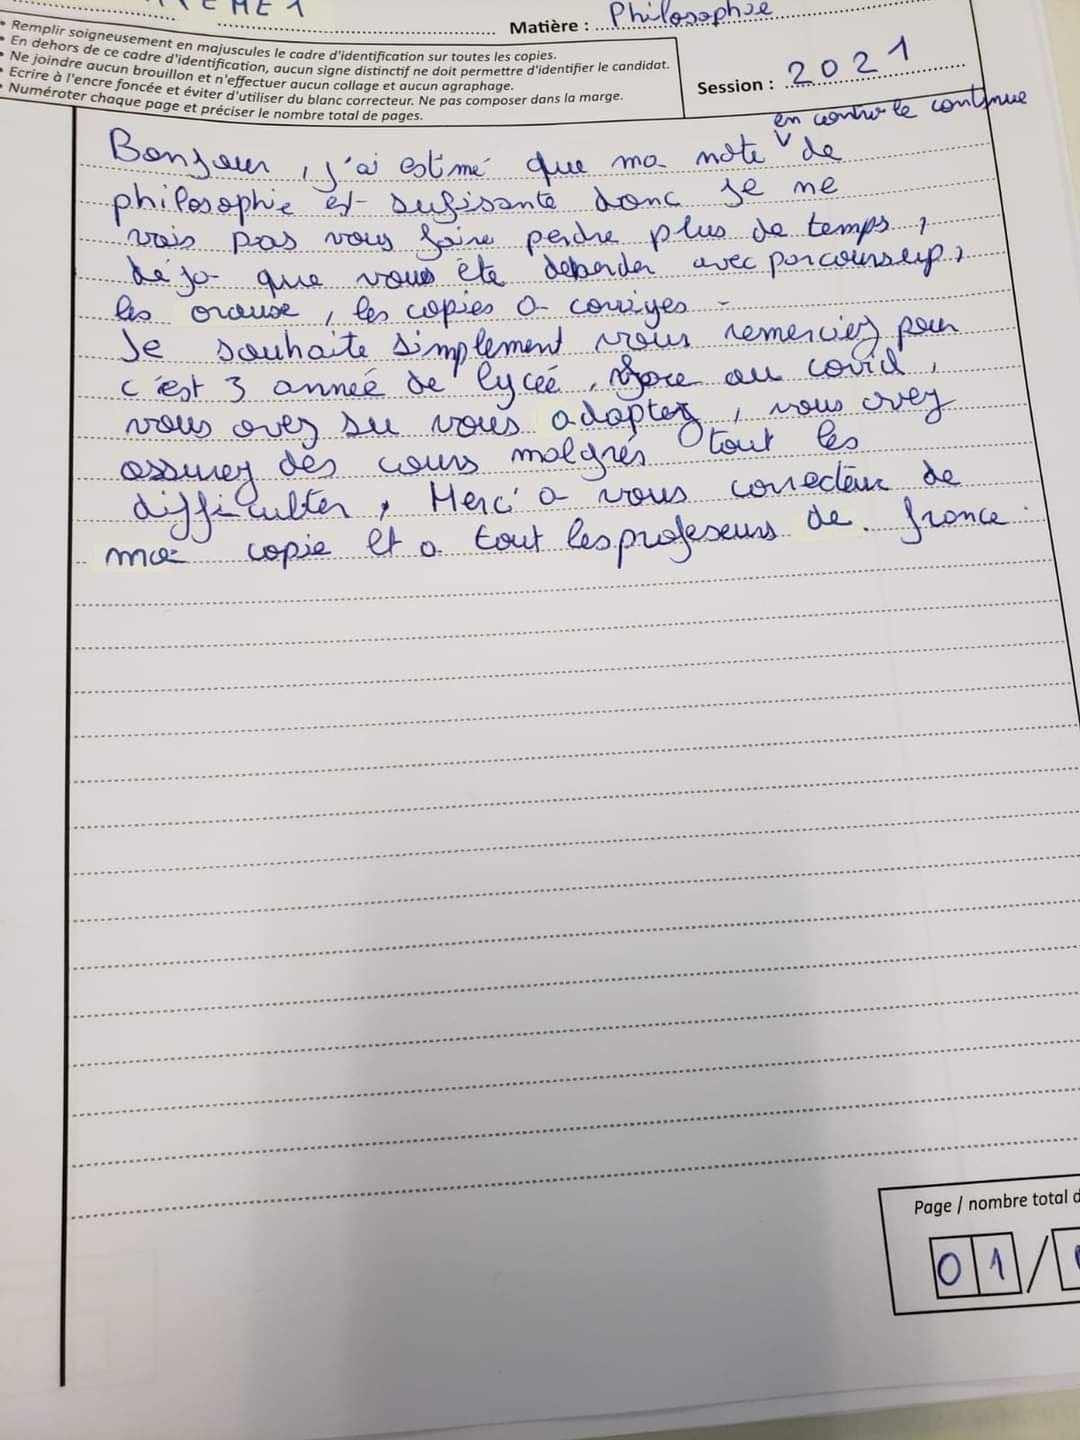 EME1
Matière : Philosophie
• Remplir soigneusement en majuscules le cadre d'identification sur toutes les copies.
• En dehors de ce cadre d'identification, aucun signe distinctif ne doit permettre d'identifier le candidat.
• Ne joindre aucun brouillon et n'effectuer aucun collage et aucun agraphage.
• Ecrire à l'encre foncée et éviter d'utiliser du blanc correcteur. Ne pas composer dans la marge.
• Numéroter chaque page et préciser le nombre total de pages.
Session : 2021
en controle continue
Bonjour, j'ai estimé que ma note de
philosophie est sufisante donc je ne
vais pas vous faire perdre plus de temps,
déja que vous ête deborder avec parcoursup,
les oraux, les copies a corriges -
Je souhaite simplement vous remerciez pour
c'est 3 anneé de lyceé, face au covid,
vous avez su vous adaptez, vous avez
assurez dès cours malgrés tout les
difficulter, Merci a vous correcteur de
ma copie et a tout les profeseurs de france.
Page / nombre total d
01 /